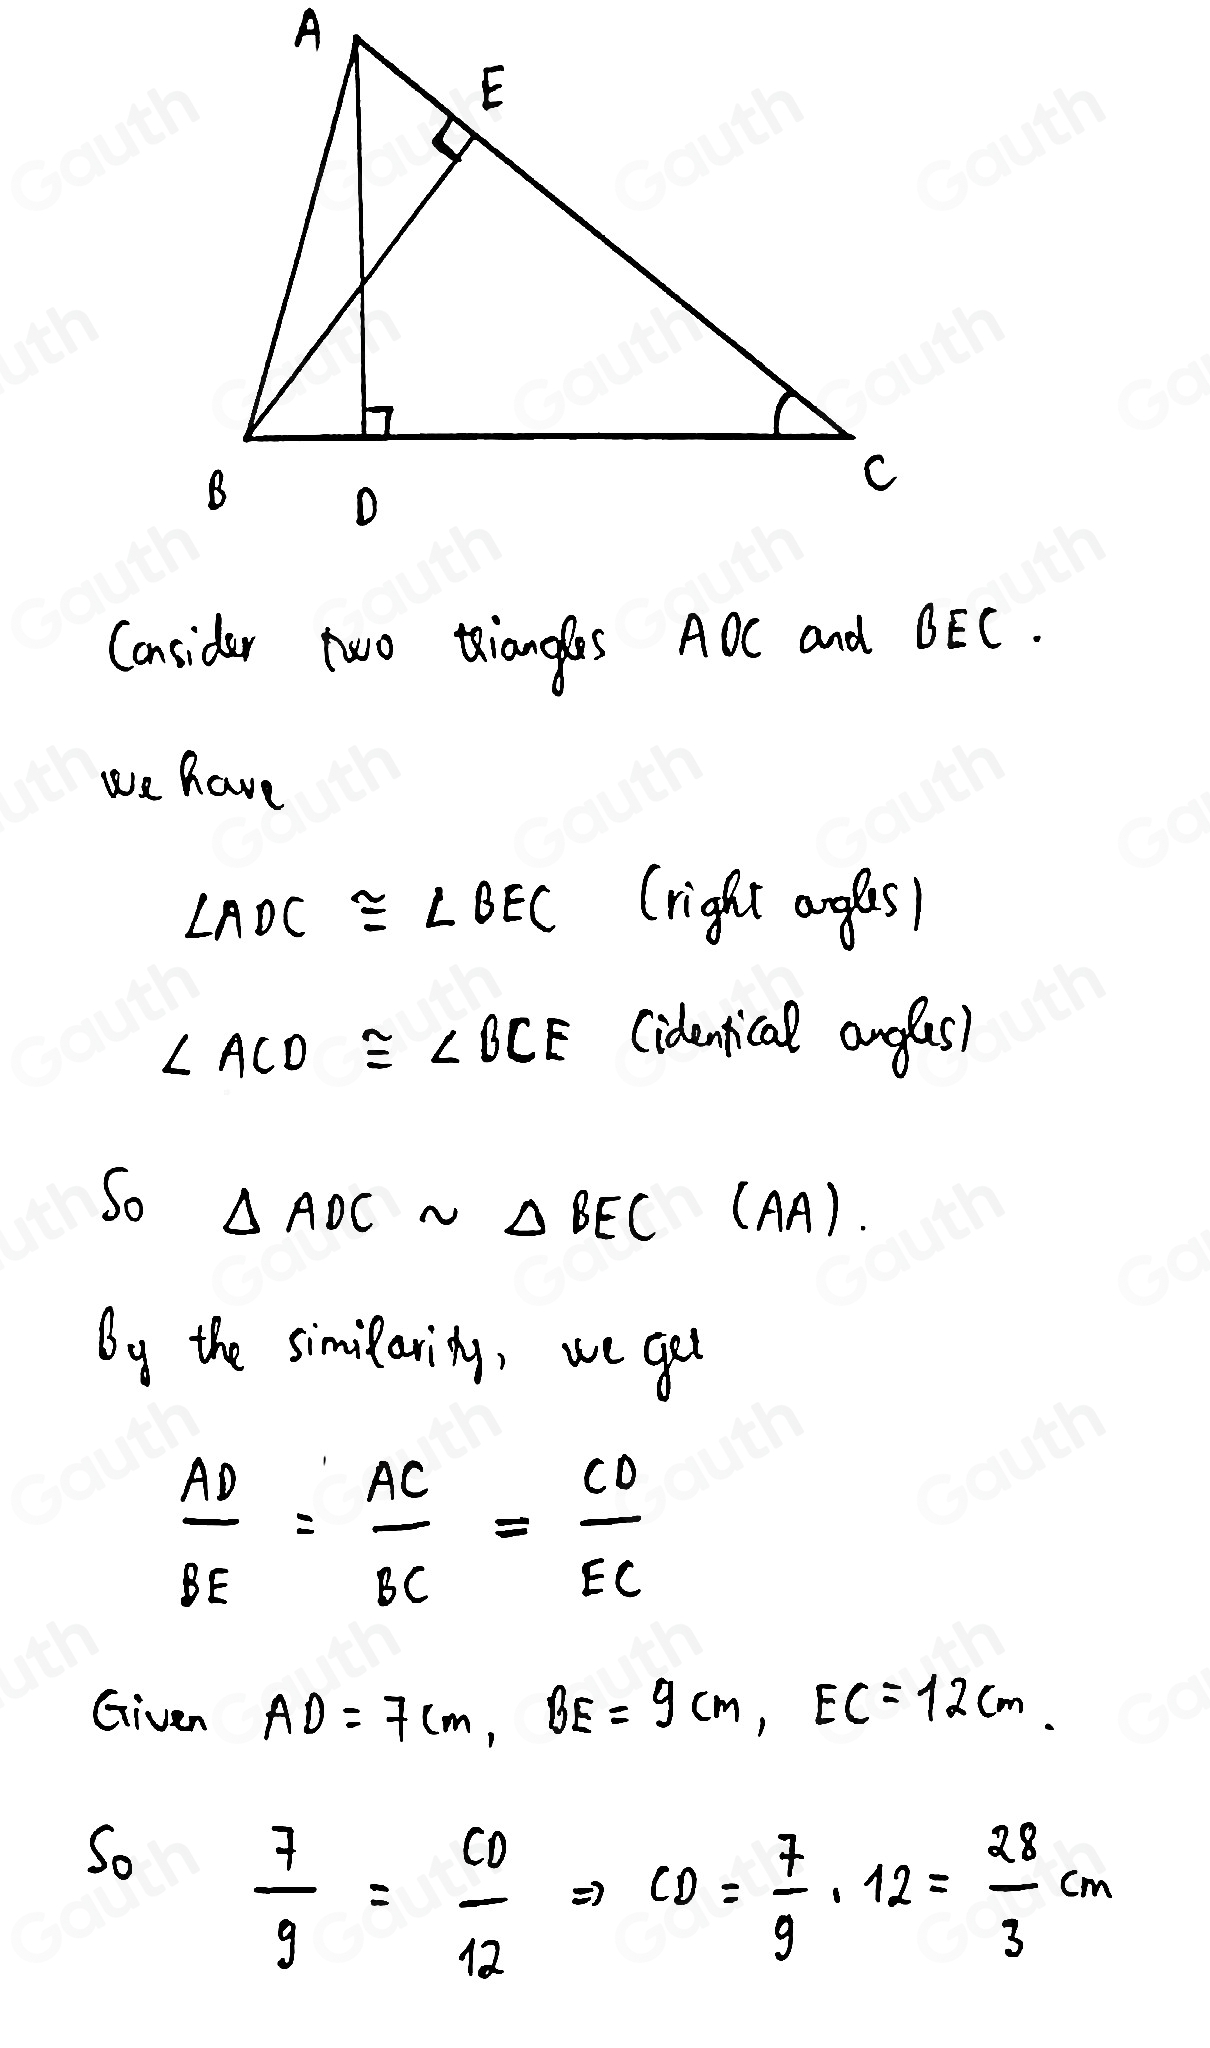 A
E
B
D
C
Consider two triangles ADC and BEC.
we have
∠ADC ≅ ∠BEC (right angles)
∠ACD ≅ ∠BCE (identical angles)
So Δ ADC ~ Δ BEC (AA).
By the similarity, we get
AD/BE = AC/BC = CD/EC
Given AD = 7cm, BE = 9cm, EC = 12cm.
So 7/9 = CD/12 ⇒ CD = 7/9 . 12 = 28/3 cm
Gauth